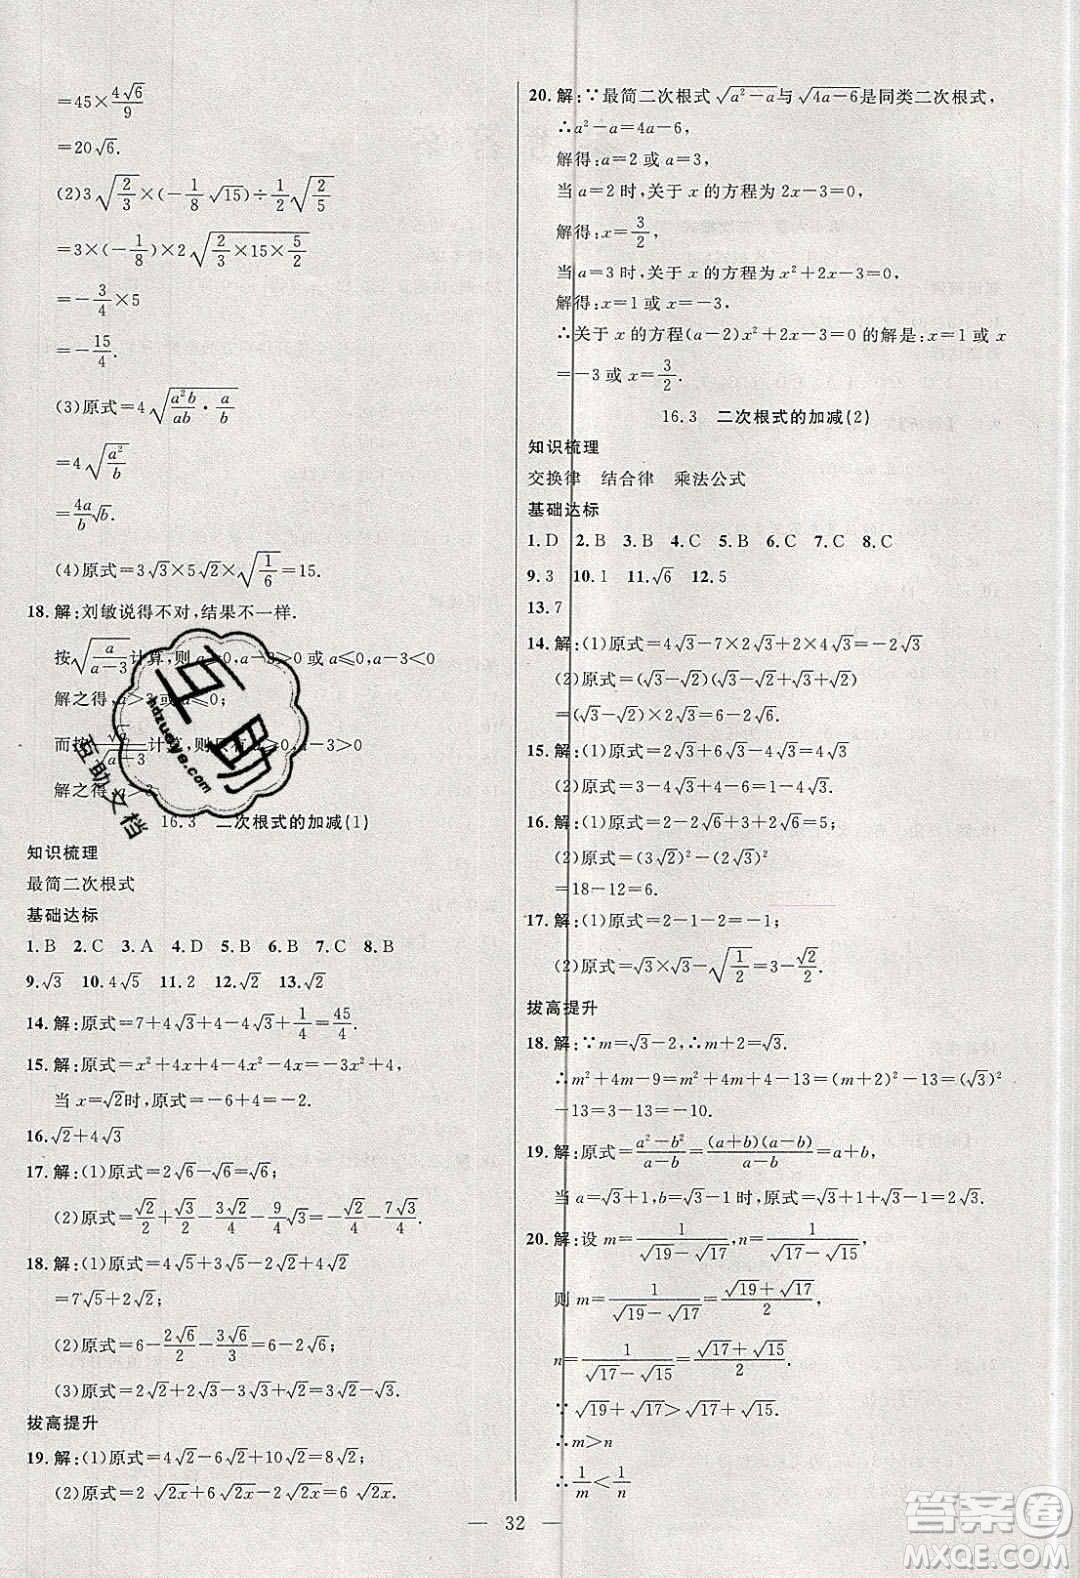 =45×\frac{4√6}{9}
=20√6.
(2)3√\frac{2}{3}×(-\frac{1}{8}√15)÷\frac{1}{2}√\frac{2}{5}
=3×(-\frac{1}{8})×2√(\frac{2}{3}×15×\frac{5}{2})
=-\frac{3}{4}×5
=-\frac{15}{4}.
(3)原式=4√(\frac{a²b}{ab}·\frac{a}{b})
=4√\frac{a²}{b}
=\frac{4a}{b}√b.
(4)原式=3√3×5√2×√\frac{1}{6}=15.
18.解:刘敏说得不对,结果不一样.
按√\frac{a}{a-3}计算,则a≥0,a-3>0或a≤0,a-3<0
解之得,a>3或a≤0;
而按 计算,则只有a≥0,a-3>0
解之得,a>3.
16.3 二次根式的加减(1)
知识梳理
最简二次根式
基础达标
1.B 2.C 3.A 4.D 5.B 6.B 7.C 8.B
9.√3 10.4√5 11.2 12.√2 13.√2
14.解:原式=7+4√3+4-4√3+\frac{1}{4}=\frac{45}{4}.
15.解:原式=x²+4x+4-4x-x²-4x=-4x
当x=√2时,原式=-6+4=-2.
16.√2+4√3
17.解:(1)原式=2√6-√6=√6
(2)原式=\frac{√2}{2}+\frac{√3}{2}-\frac{3√2}{4}-\frac{9}{4}√3=-\frac{√2}{4}-\frac{7√3}{4}.
18.解:(1)原式=4√5+3√5-2√2+4√2
=7√5+2√2;
(2)原式=6-\frac{2√6}{3}-\frac{3√6}{3}=6-\frac{5√6}{3}
(3)原式=2√2+2√3-3√3+√2=3√2-√3.
拔高提升
19.解:(1)原式=4√2-6√2+10√2=8√2
(2)原式=2√2x+6√2x-2√2x=6√2x.
20.解:∵最简二次根式√(a²-a)与√(4a-6)是同类二次根式,
∴a²-a=4a-6,
解得:a=2或a=3,
当a=2时,关于x的方程为2x-3=0,
解得:x=\frac{3}{2},
当a=3时,关于x的方程为x²+2x-3=0,
解得:x=1或x=-3,
∴关于x的方程(a-2)x²+2x-3=0的解是:x=1或x
=-3或x=\frac{3}{2}.
16.3 二次根式的加减(2)
知识梳理
交换律 结合律 乘法公式
基础达标
1.D 2.B 3.B 4.C 5.B 6.C 7.C 8.C
9.3 10.1 11.√6 12.5
13.7
14.解:(1)原式=4√3-7×2√3+2×4√3=-2√3
(2)原式=(√3-√2)(√3+2-√3)
=(√3-√2)×2=2√3-2√2
15.解:(1)原式=2√3+6√3-4√3=4√3
(2)原式=(4√3-2√3)÷2√3=1
16.解:(1)原式=2-2√6+3+2√6=5;
(2)原式=(3√2)²-(2√3)²
=18-12=6.
17.解:(1)原式=2-1-2=-1;
(2)原式=√3×√3-√\frac{1}{2}=3-\frac{√2}{2}.
拔高提升
18.解:∵m=√3-2,∴m+2=√3.
∴m²+4m-9=m²+4m+4-13=(m+2)²-13=(√3)²
-13=3-13=-10.
19.解:原式=\frac{a²-b²}{a-b}=\frac{(a+b)(a-b)}{a-b}=a+b,
当a=√3+1,b=√3-1时,原式=√3+1+√3-1=2√3.
20.解:设m=\frac{1}{√19-√17},n=\frac{1}{√17-√15},
则m=\frac{1}{√19-√17}=\frac{√19+√17}{2},
n=\frac{1}{√17-√15}=\frac{√17+√15}{2}.
∵√19+√17>√17+√15
∴m>n
∴\frac{1}{m}<\frac{1}{n}
32
互助
hdzuoye.com
互助文档
答案圈
MXQE.COM